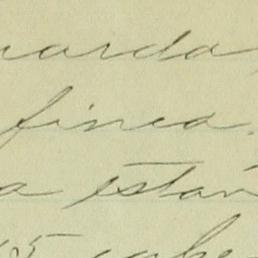 uarda,
finca.
a están
45 cabe